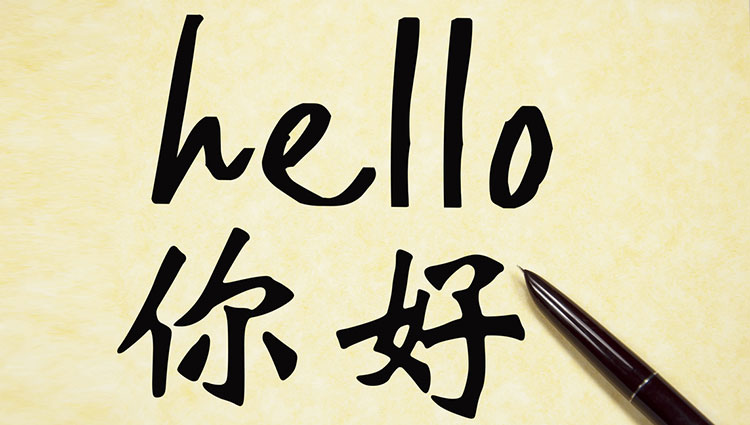 hello
你好